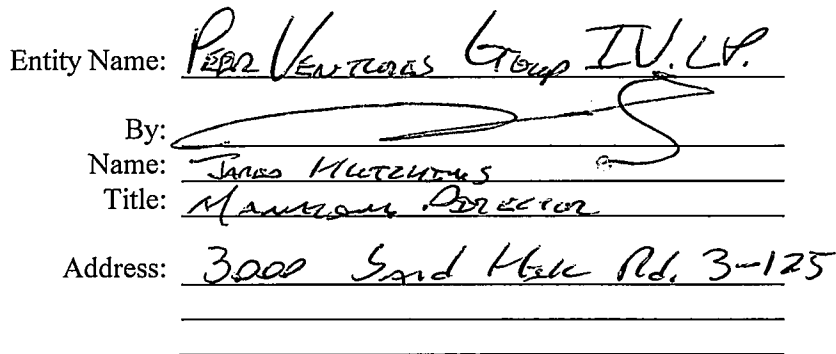 Entity Name: Peer Ventures Group IV. LP.
By:
Name: James Hutchins
Title: Managing Director
Address: 3000 Sand Hill Rd. 3-125